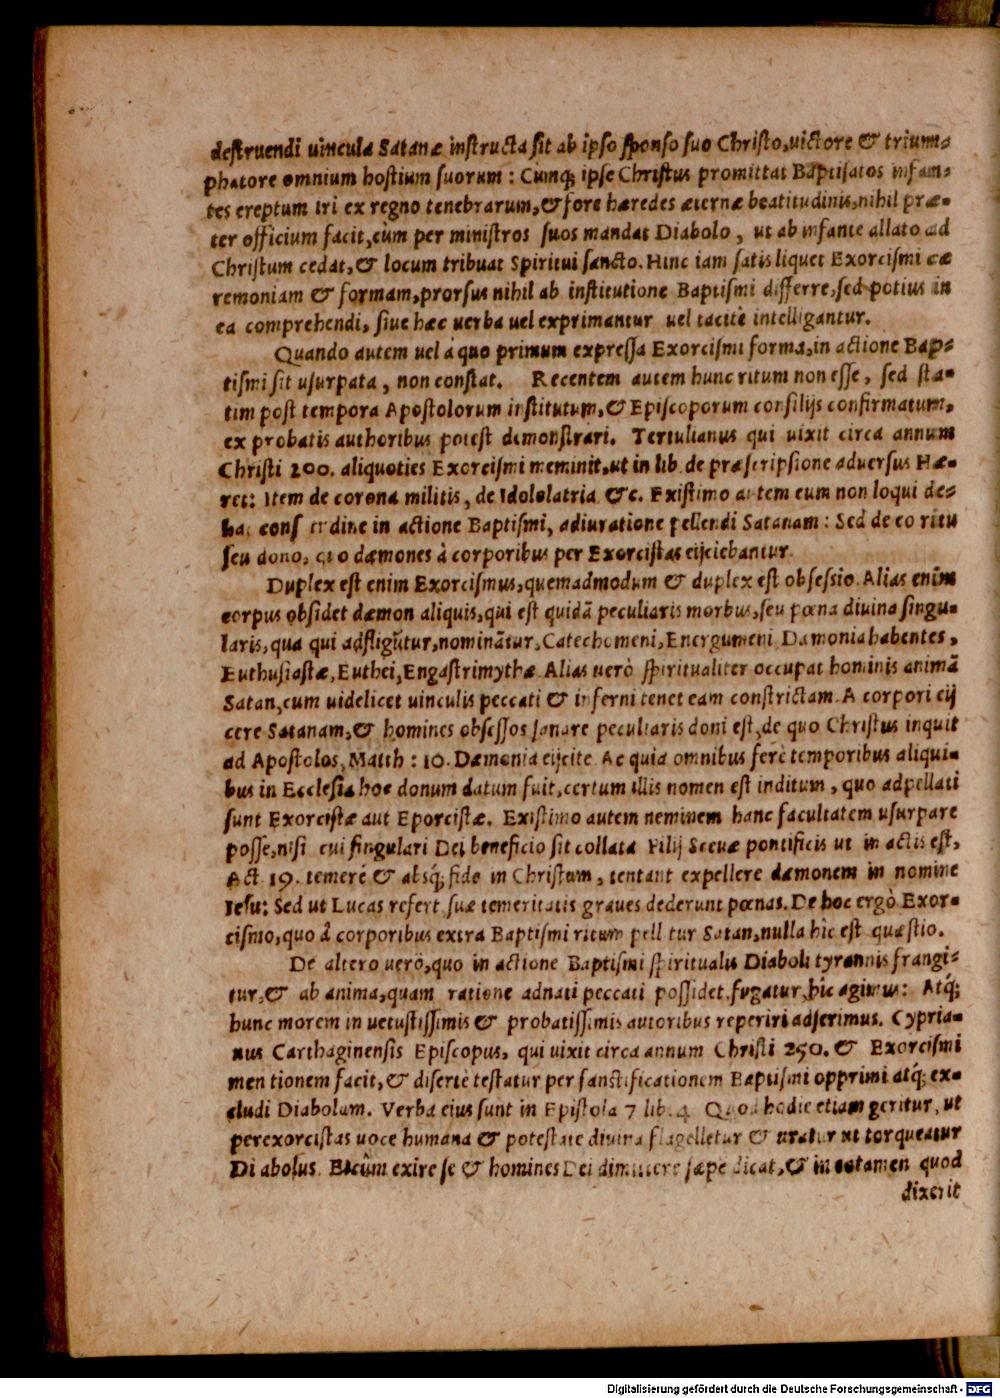 deſtruendi uincula Satanæ inſtructa ſit ab ipſo ſponſo ſuo Chriſto, uictore & trium-
phatore omnium hoſtium ſuorum: Cumq; ipſe Chriſtus promittat Baptiſatos infan-
tes ereptum iri ex regno tenebrarum, & fore hæredes æternæ beatitudinis, nihil præ-
ter officium facit, cùm per miniſtros ſuos mandat Diabolo, ut ab infante allato ad
Chriſtum cedat, & locum tribuat Spiritui ſancto. Hinc iam ſatis liquet Exorciſmi cæ
remoniam & formam, prorſus nihil ab inſtitutione Baptiſmi differre, ſed potius in
ea comprehendi, ſiue hæc uerba uel exprimantur uel tacitè intelligantur.
Quando autem uel à quo primum expreſſa Exorciſmi forma, in actione Bap-
tiſmi ſit uſurpata, non conſtat. Recentem autem hunc ritum non eſſe, ſed ſta-
tim poſt tempora Apoſtolorum inſtitutum, & Epiſcoporum conſilijs confirmatum,
ex probatis authoribus poteſt demonſtrari. Tertulianus qui uixit circa annum
Chriſti 200. aliquoties Exorciſmi meminit, ut in lib. de præſcripſione aduerſus Hæ-
ret: Item de corona militis, de Idololatria &c. Exiſtimo autem eum non loqui de
in actione Baptiſmi, adiuratione pellendi Satanam: Sed de eo ritu
ſeu dono, quo dæmones à corporibus per Exorciſtas eijciebantur.
Duplex eſt enim Exorciſmus, quemadmodum & duplex eſt obſeſsio. Alias enim
corpus obſidet dæmon aliquis, qui eſt quidã peculiaris morbus, ſeu pœna diuina ſingu-
laris, qua qui adfligũtur, nominãtur, Catechomeni, Energumeni Dæmonia habentes,
Euthuſiaſtæ, Euthei, Engaſtrimythæ. Alias uerò ſpiritualiter occupat hominis animã
Satan, cum uidelicet uinculis peccati & inferni tenet eam conſtrictam. A corpori eij
cere Satanam, & homines obſeſſos ſanare peculiaris doni eſt, de quo Chriſtus inquit
ad Apoſtolos, Matth: 10. Dæmonia eijcite. Ac quia omnibus ferè temporibus aliqui-
bus in Eccleſia hoc donum datum fuit, certum illis nomen eſt inditum, quo adpellati
ſunt Exorciſtæ aut Eporciſtæ. Exiſtimo autem neminem hanc facultatem uſurpare
poſſe, niſi cui ſingulari Dei beneficio ſit collata. Filij Sceuæ pontificis ut in actis eſt,
Act 19. temerè & absq; fide in Chriſtum, tentant expellere dæmonem in nomine
Ieſu: Sed ut Lucas refert ſuæ temeritatis graues dederunt pœnas. De hoc ergò Exor-
ciſmo, quo à corporibus extra Baptiſmi ritum pellitur Satan, nulla hic eſt quæſtio.
De altero uerò, quo in actione Baptiſmi ſpiritualis Diaboli tyrannis frangi-
tur, & ab anima, quam ratione adnati peccati poſſidet, fugatur, hic agimus: Atq;
hunc morem in uetuſtiſſimis & probatiſſimis autoribus reperiri adſerimus. Cypria-
nus Carthaginenſis Epiſcopus, qui uixit circa annum Chriſti 250. & Exorciſmi
mentionem facit, & diſertè teſtatur per ſanctificationem Baptiſmi opprimi atq; ex-
cludi Diabolum. Verba eius ſunt in Epiſtola 7 lib. 4. Quod hodie etiam geritur, ut
per exorciſtas uoce humana & poteſtate diuina flagelletur & uratur ut torqueatur
Diabolus. Et cùm exire ſe & homines Dei dimittere ſæpe dicat, & in eotamen quod
dixerit
Digitalisierung gefördert durch die Deutsche Forschungsgemeinschaft - DFG